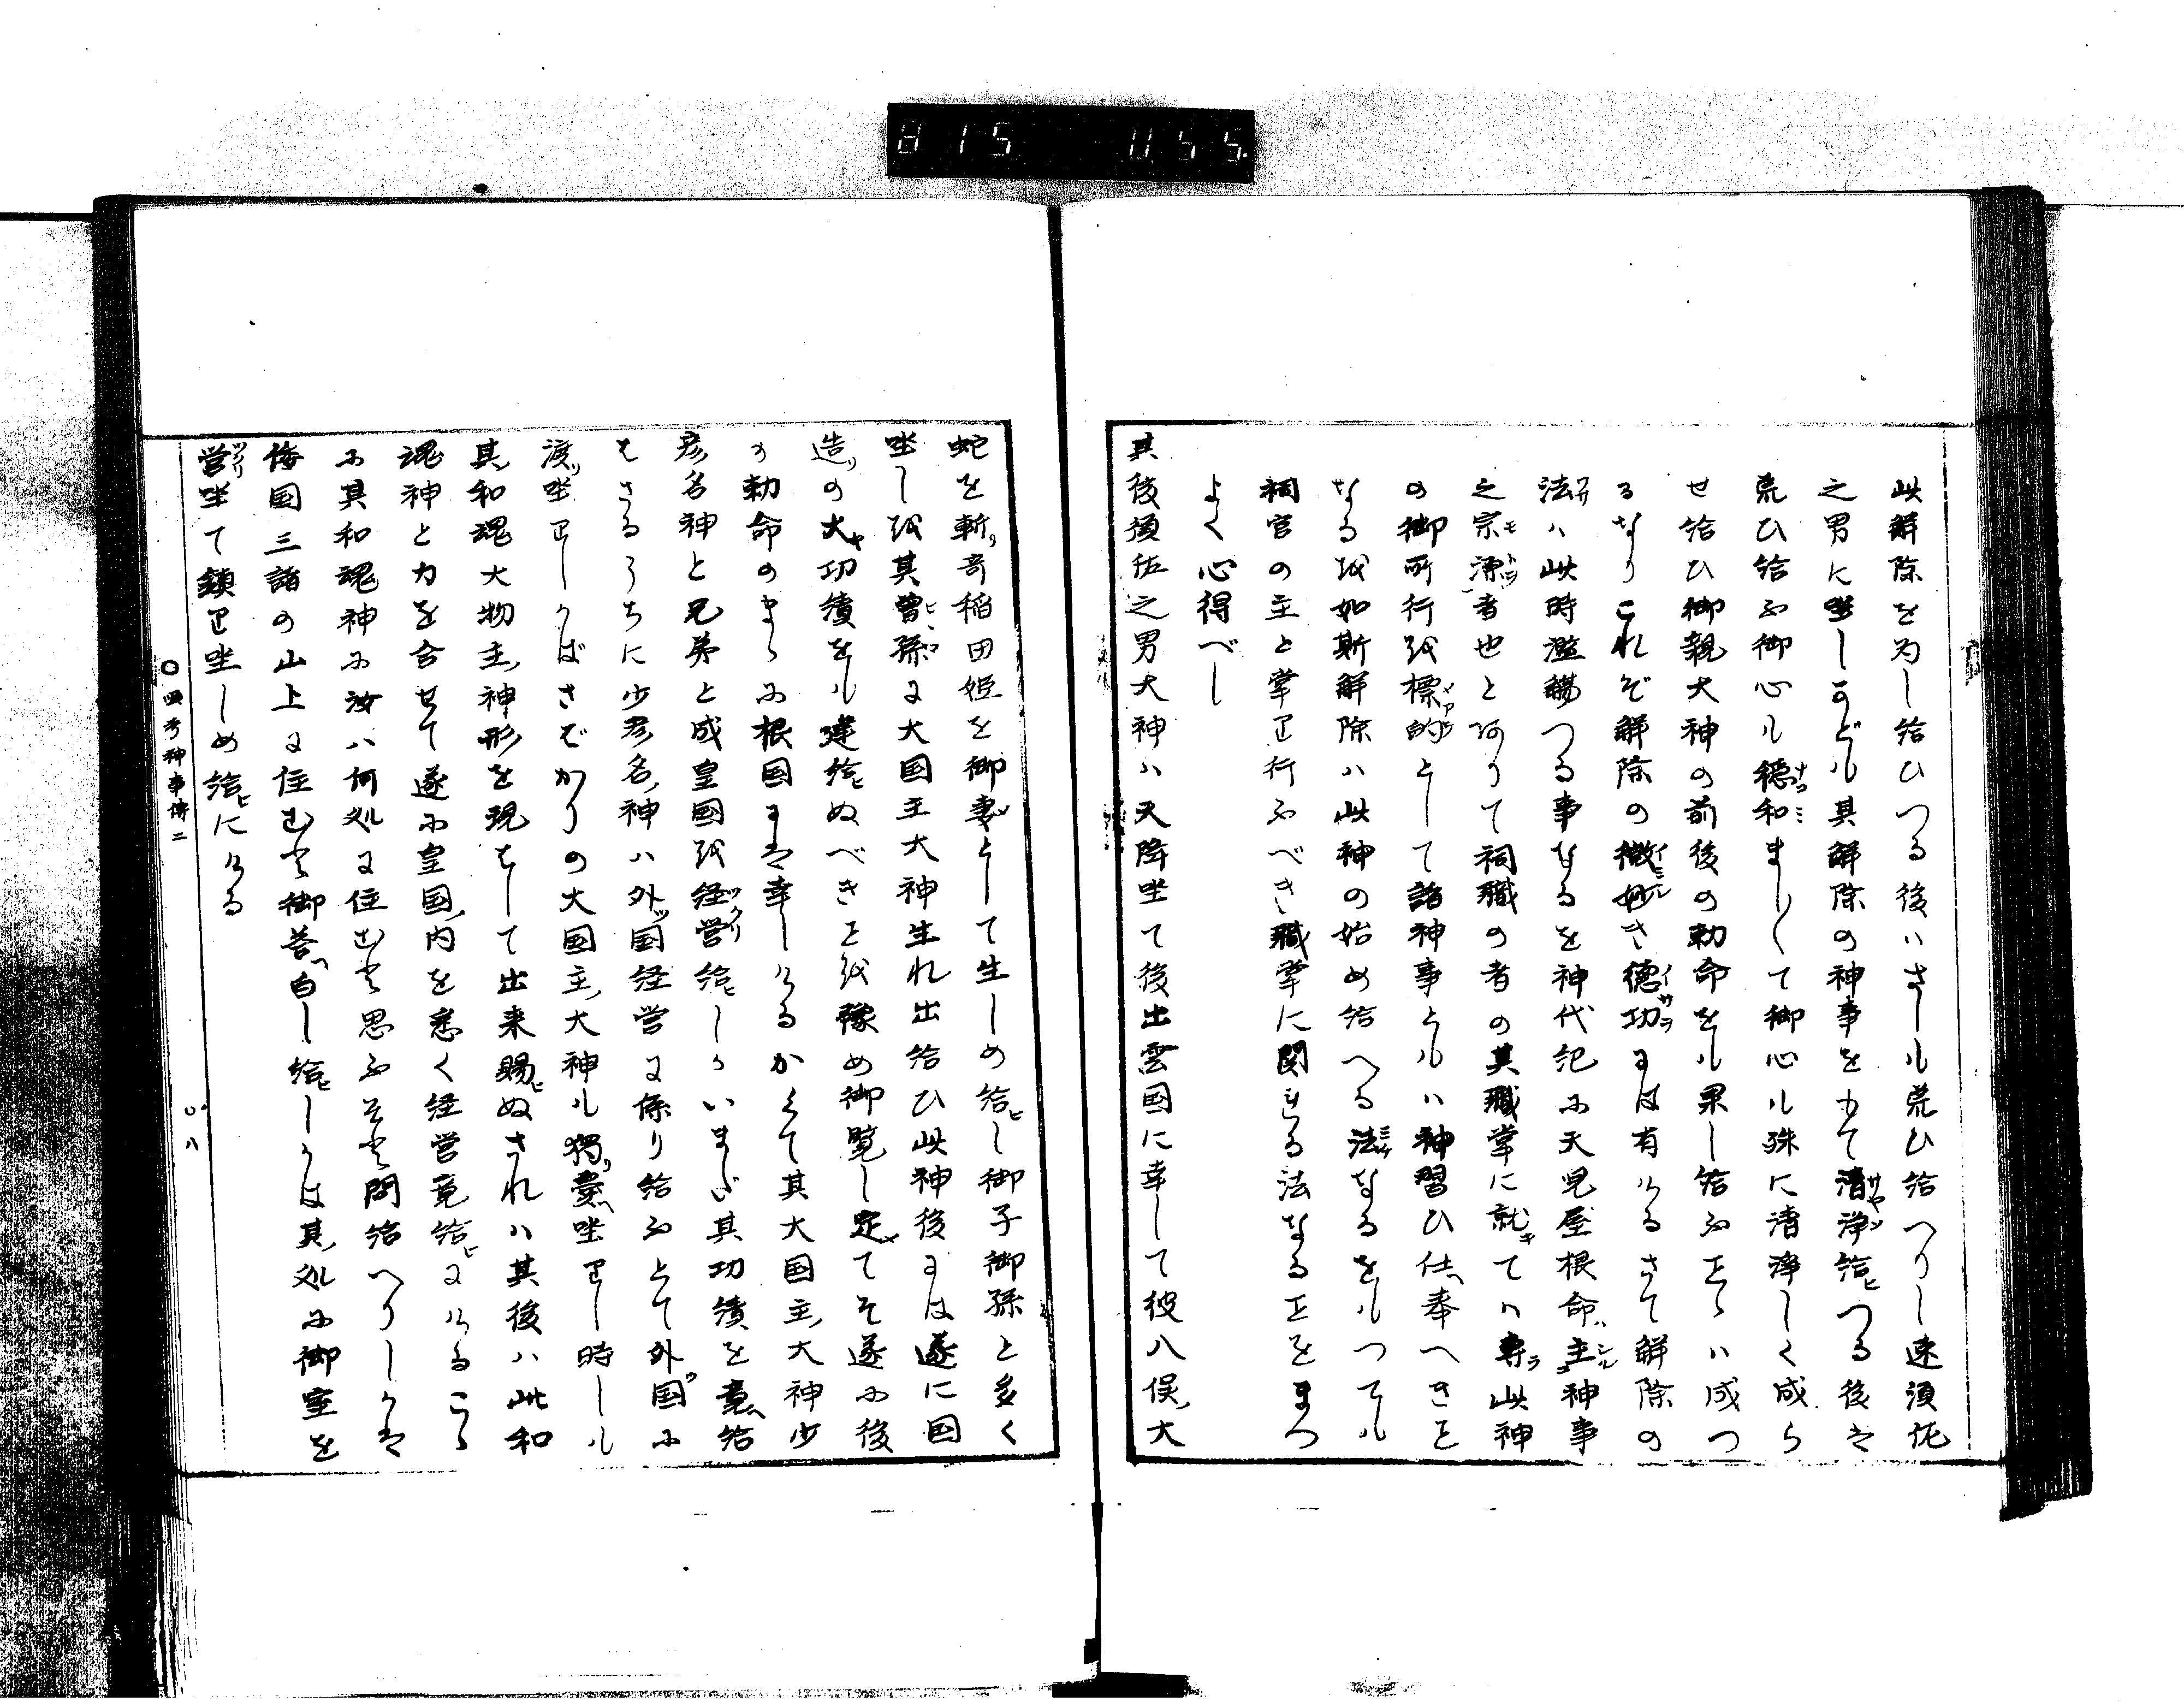 此解除を為し給ひつる後ハさしも荒ひ給へりし速須佐
之男に坐しかども其解除の神事をもて清浄給ひつる後は
荒ひ給ふ御心も穏和まし〳〵て御心も殊に清浄しく成ら
せ給ひ御親大神の前後の勅命をも果し給ふことハ成つ
るなりこれぞ解除の微妙き徳功には有けるさて解除の
法ハ此時濫觴つる事なるを神代紀に天児屋根命ハ主神事
之宗源者也とありて祠職の者の其職掌に就てハ専ら此神
の御所行を標的として諸神事とも八神習ひ仕へ奉へきこと
なるを如斯解除ハ此神の始め給へる法なるをもつても
祠官の主と掌り行ふべき職掌に関れる法なることをまつ
よく心得べし
其後須佐之男大神ハ天降坐て後出雲国に幸して彼八俣ノ大
蛇を斬り奇稲田姫を御妻として生しめ給ひし御子御孫と多く
坐しを其曽孫に大国主大神生れ出給ひ此神後には遂に国
造りの大功績をも建給ひぬべきことを豫め御覧し定めてそ遂に後
の勅命のまゝに根国には幸しけるかくて其大国主ノ大神少
彦名神と兄弟と成皇国を経営給ひしかいまだ其功績を竟へ給
はさるうちに少彦名ノ神ハ外ツ国経営に係り給ふとて外ツ国に
渡り坐りしかばさばかりの大国主ノ大神も独り憂へ坐りし時しも
其和魂大物主ノ神形を現はして出来賜ひぬされハ其後ハ此和
魂神と力を合せて遂に皇国ノ内を悉く経営竟給ひにけるこゝ
に其和魂神に汝ハ何処に住むと思ふそと問給へりしかは
倭国三諸の山上に住むと御答へ白し給ひしかは其ノ処に御室を
営坐て鎮り坐しめ給ひにける
〇四考神事傳二
〇八
815 055